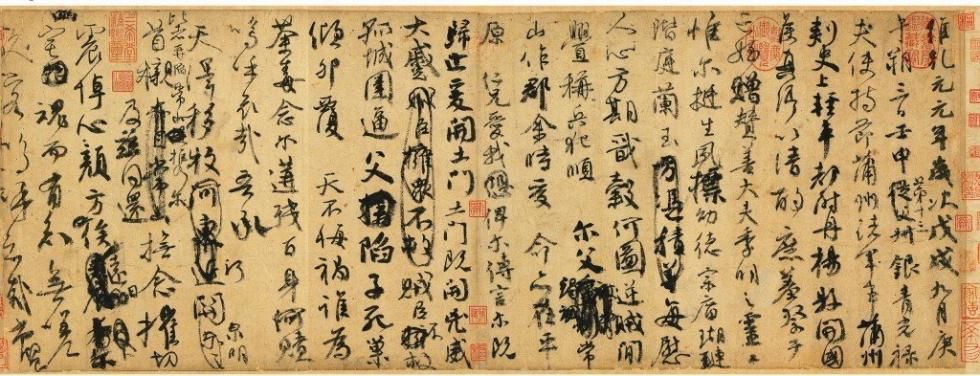 維乾元元年歲次戊戌九月庚
午朔三日壬申第十三從父叔銀青光祿
夫使持節蒲州諸軍事蒲州
刺史上輕車都尉丹楊縣開國
侯真卿以清酌庶羞祭于
亡姪贈贊善大夫季明之靈曰
惟爾挺生夙標幼德宗廟瑚璉
階庭蘭玉方憑積善每慰
人心方期戩穀何圖逆賊閒
釁稱兵犯順爾父竭誠常
山作郡余時受命亦在平
原仁兄愛我恐俾爾傳言爾既
歸止爰開土門土門既開凶威
大蹙賊臣擁眾不救賊臣不擁救
孤城圍逼父擒陷子死巢
傾卵覆天不悔禍誰為
荼毒念爾遘殘百身何贖
嗚呼哀哉吾承
天澤移牧河東近河關泉明
比者再陷常山攜爾
首櫬亦自常山撫念摧切
及茲同還
震悼心顏方俟遠日卜爾
幽宅魂而有知無嗟
久客嗚呼哀哉尚饗